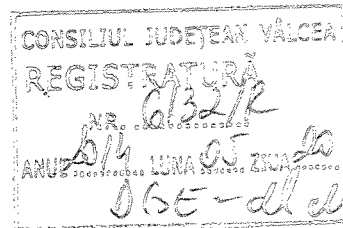 CONSILIUL JUDEȚEAN VÂLCEA
REGISTRATURĂ
NR. 6132/R
ANUL 2014 LUNA 05 ZIUA 20
DGE -